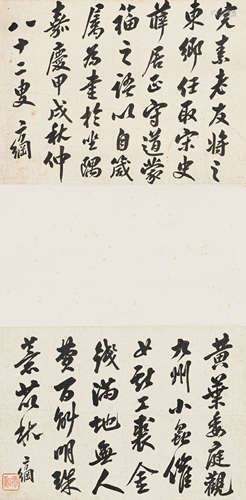 完素老友将之
東鄉任取宋史
薛居正守道蒙
福之語以自箴
属為書於坐隅
嘉慶甲戌秋仲
八十二叟方綱
黃葉委庭觀
九州小蟲催
女獻工裘金
錢滿地無人
費百斛明珠
薏苡秋
方綱